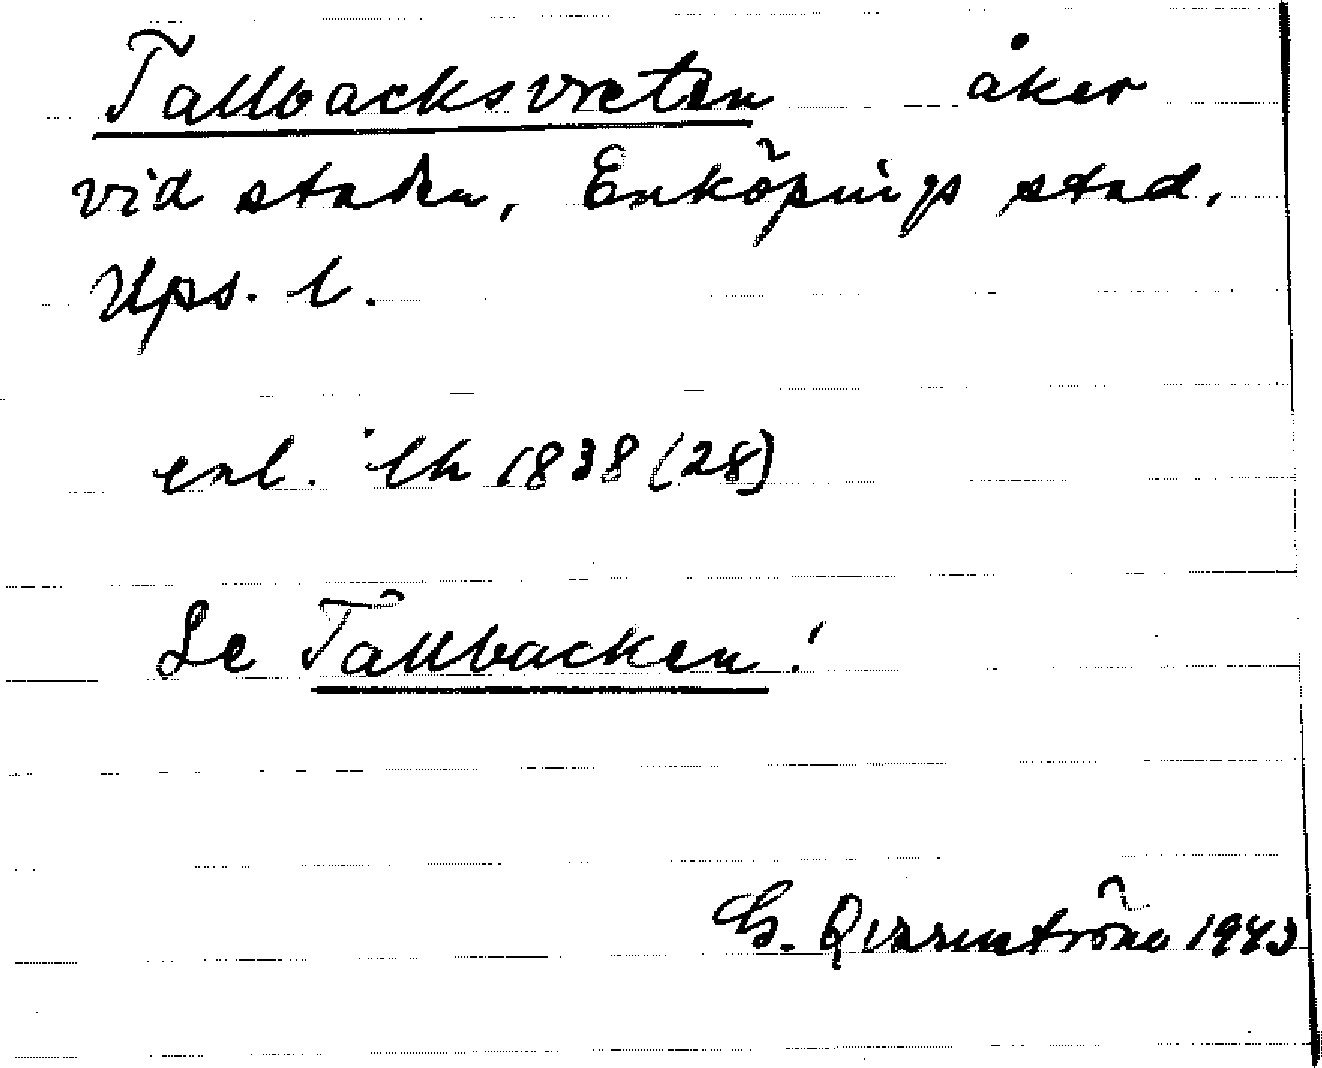 Tallbacksvreten åker
vid staden, Enköpings stad,
Ups. l.
enl. lh 1838 (28)
Se Tallbacken!
G. Qvarnström 1943